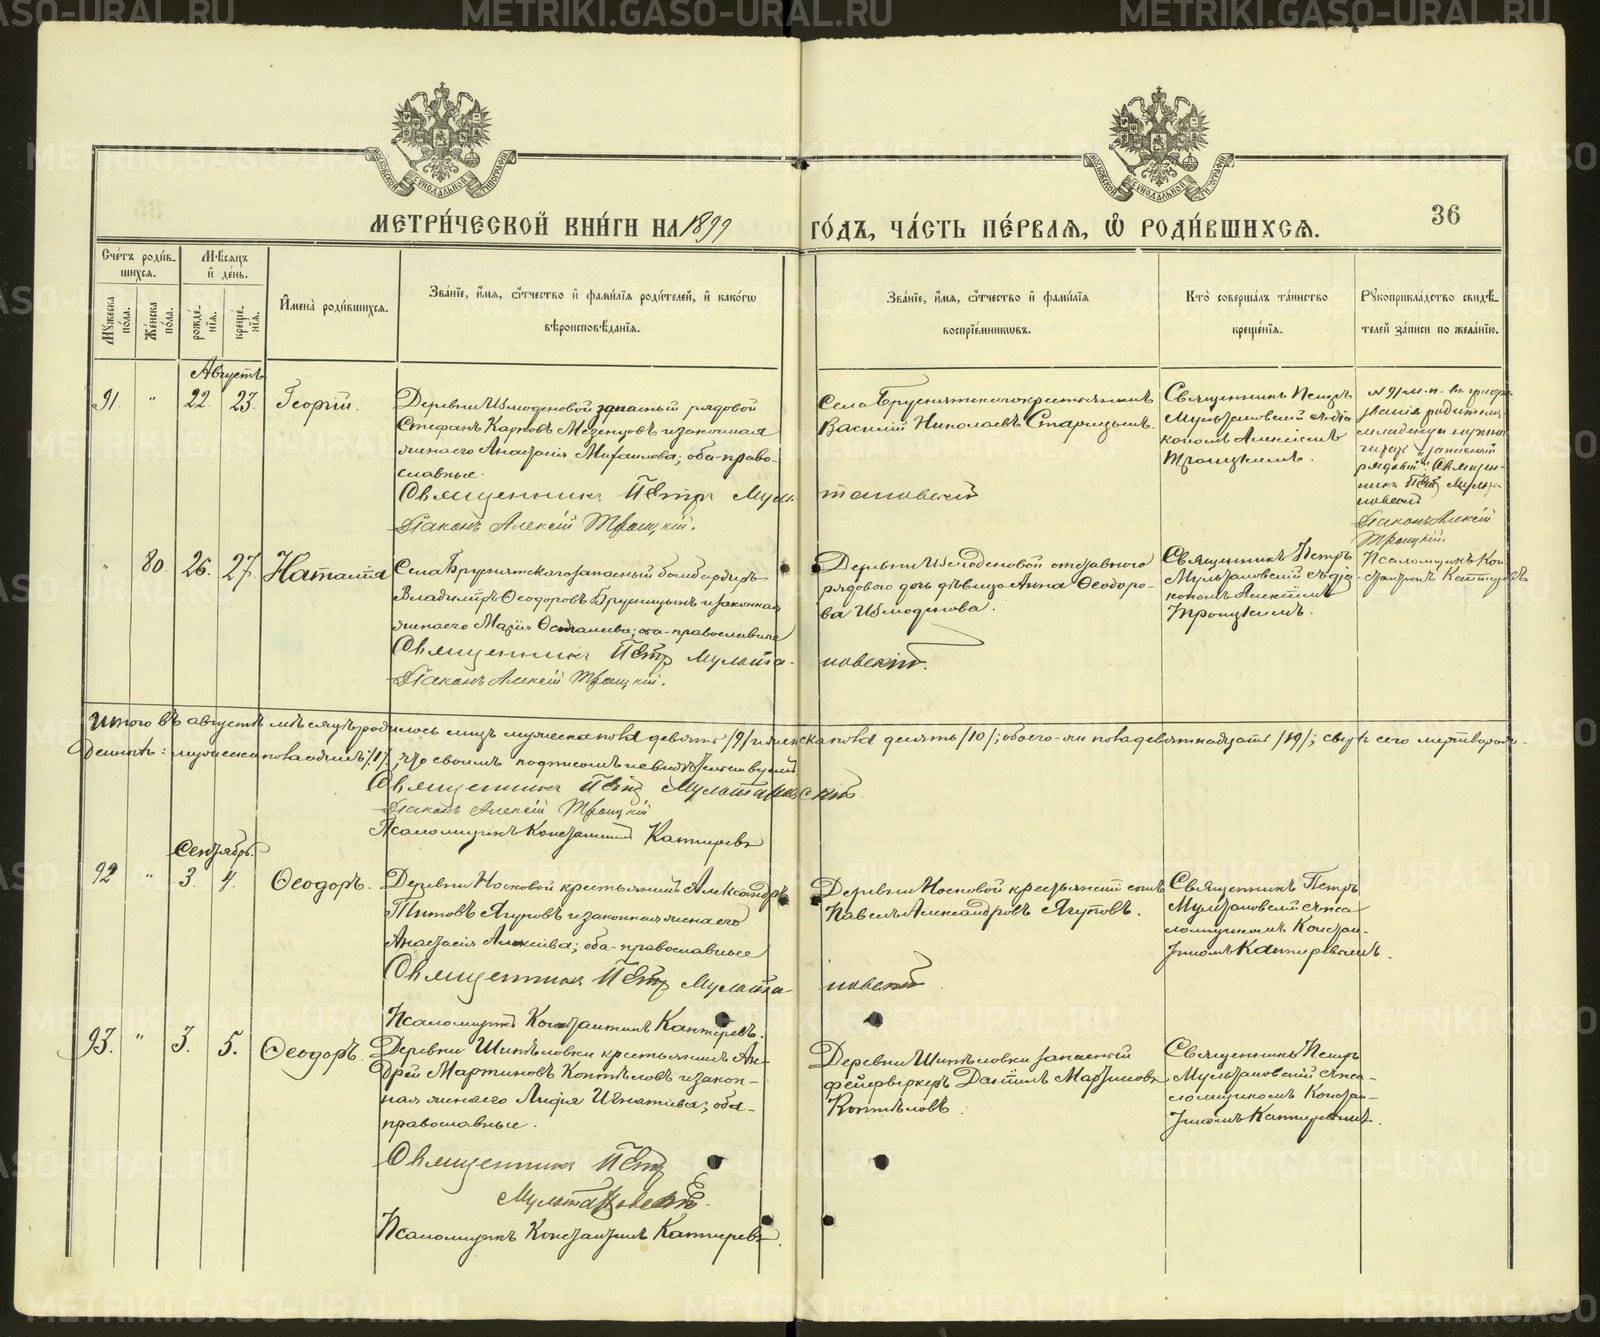 МЕТРИ́ЧЕСКОЙ КНИ́ГИ НА 1899 ГО́ДЪ, ЧА́СТЬ ПЕ́РВАЯ, Ѿ РОДИ́ВШИХСЯ.
36
МОСКОВСКОЙ СУНОДАЛЬНОЙ ТИПОГРАФІИ
МОСКОВСКОЙ СУНОДАЛЬНОЙ ТИПОГРАФІИ
Сче́тъ роди́в-
шихся.
Му́жеска по́ла.
Же́нска по́ла.
Мѣ́сяцъ
и҆ де́нь.
рожде́-
нїя.
креще́-
нїя.
И҆мена̀ роди́вшихся.
Зва́нїе, и҆́мя, ѻ҆́тчество и҆ фами́лїя роди́телей, и҆ како́гѡ
вѣроисповѣ́данїя.
Зва́нїе, и҆́мя, ѻ҆́тчество и҆ фами́лїя
воспрїе́мникѡвъ.
Кто̀ соверша́лъ та́инство
креще́нїя.
Рꙋкоприкла́дство свидѣ́-
телей за́писи по жела́нїю.
Августъ
91. " 22. 23. Георгій.
Деревни Измоденовой запасный рядовой
Стефанъ Карповъ Мезенцовъ и законная
жена его Анастасія Михаилова; оба-право-
славные.
Священникъ Петръ Мульта-
тановскій
Діаконъ Алексій Троицкій.
Села Бруснятскаго крестьянинъ
Василій Николаевъ Старицынъ.
Священникъ Петръ
Мультановскій съ діа
кономъ Алексіемъ
Троицкимъ.
Священ-
никъ Петръ Мульта-
новскій
Діаконъ Алексій
Троицкій.
" 80. 26. 27. Наталія
Села Бруснятскаго запасный бомбардиръ
Владиміръ Ѳеодоровъ Брусницынъ и законная
жена его Марія Осталива; оба-православные
Священникъ Петръ Мульта-
новскій.
Діаконъ Алексій Троицкій.
Деревни Измоденовой отставного
рядового дочь дѣвица Анна Ѳеодоро-
ва Измоденова.
Священникъ Петръ
Мультановскій съ діа-
кономъ Алексіемъ
Троицкимъ.
Псаломщикъ Кон
стантинъ Кантеревъ
Итого въ августѣ мѣсяцѣ родилось лицъ мужеска пола девять /9/ и женска пола десять /10/; обоего-ли пола девятнадцать /19/; сверхъ сего мертворож-
денныхъ: мужеска пола одинъ /1/,
Священникъ Петръ Мультановскій.
Діаконъ Алексій Троицкій
Псаломщикъ Константинъ Кантеревъ
Сентябрь.
92 " 3. 4. Ѳеодоръ.
Деревни Носковой крестьянинъ Александръ
Титовъ Ягуповъ и законная жена его
Анастасія Алексіева; оба-православные
Священникъ Петръ Мульта-
новскій
Псаломщикъ Константинъ Кантеревъ.
Деревни Носковой крестьянскій сынъ
Павелъ Александровъ Ягуповъ.
Священникъ Петръ
Мультановскій съ пса
ломщикомъ Констан-
тиномъ Кантеревымъ.
93. " 3. 5. Ѳеодоръ.
Деревни Шипѣловки крестьянинъ Ан-
дрей Мартиновъ Коптѣловъ и закон-
ная жена его Лидія Игнатіева; оба-
православные.
Священникъ Петръ
Мультановскій.
Псаломщикъ Константинъ Кантеревъ.
Деревни Шипѣловки запасный
фейерверкеръ Даніилъ Мартиновъ
Коптѣловъ.
Священникъ Петръ
Мультановскій съ пса-
ломщикомъ Констан-
тиномъ Кантеревымъ.
METRIKI.GASO-URAL.RU